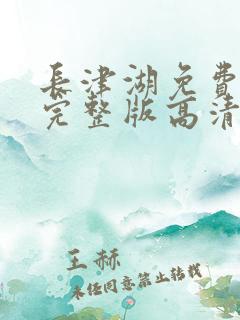 長津湖免費
完整版高清
王赫
未经同意禁止转载